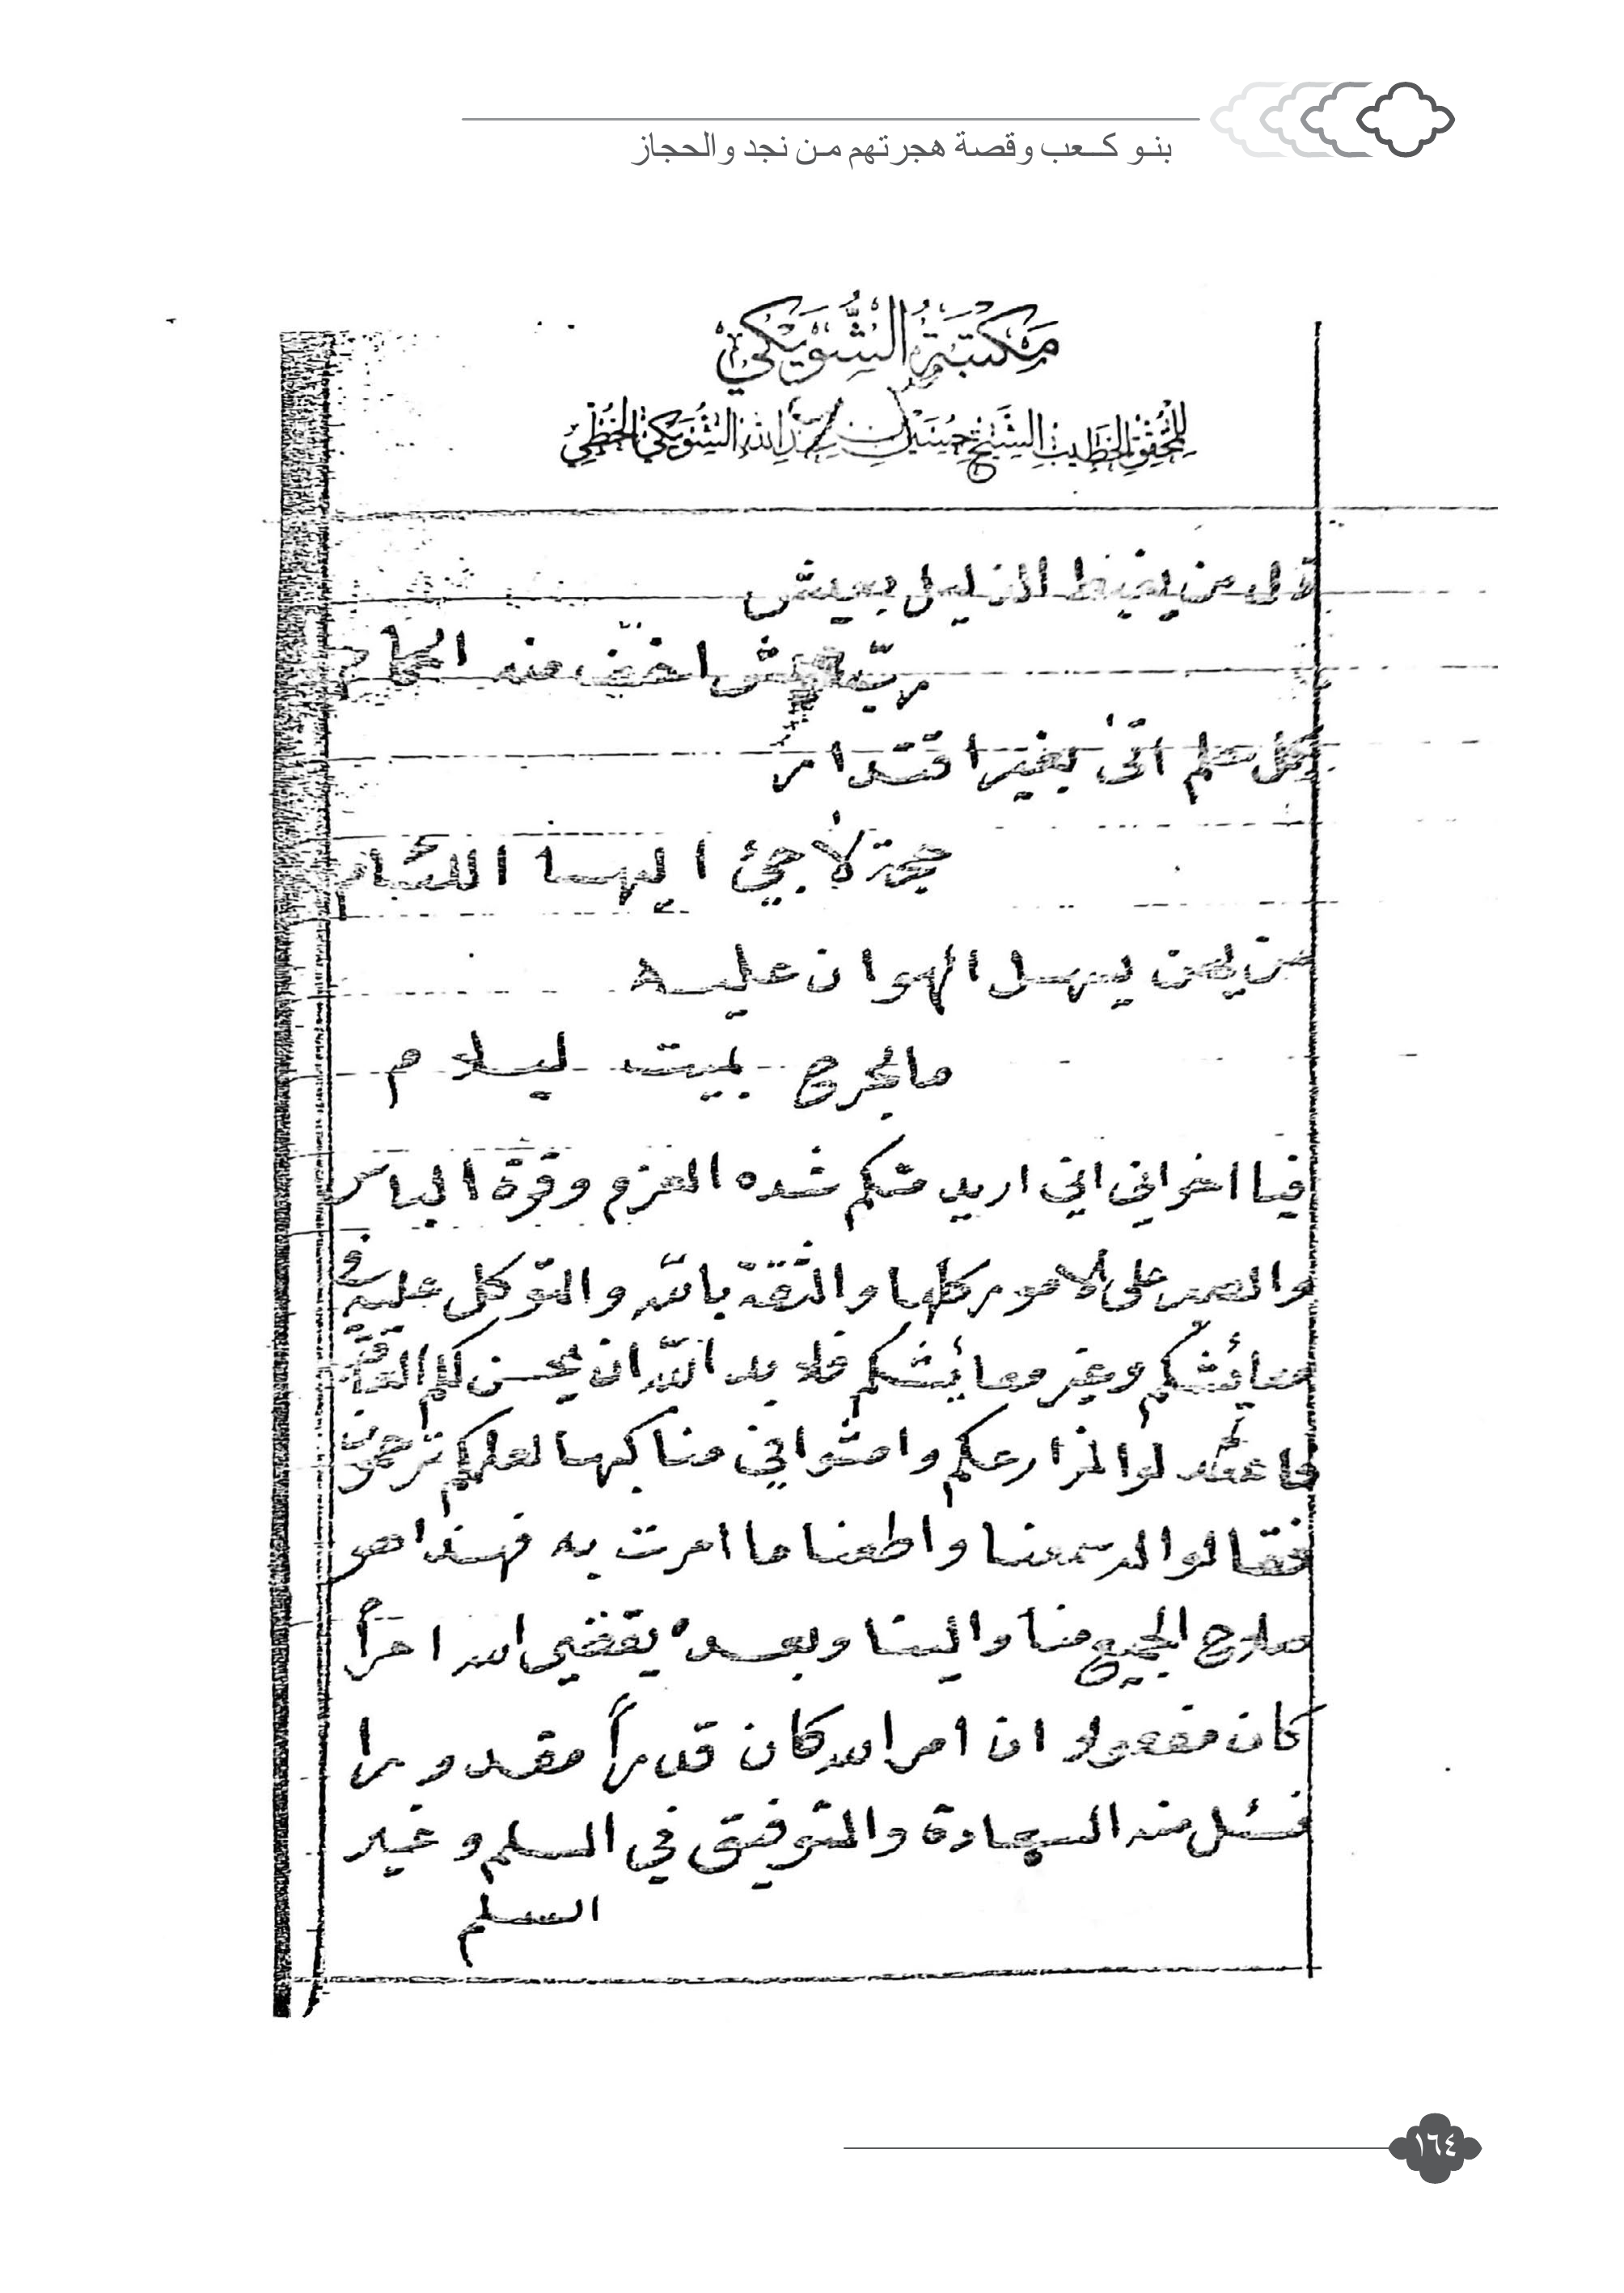 بنو كعب وقصة هجرتهم من نجد والحجاز
مَكتبَةُ الشُّوَيكي
للمحقق الخطيب الشيخ حسين بن عبدالله الشويكي الخطي
ذل من يغبط الذليل بعيش
ربّ عيش اخفّ منه الحمام
كل حلم اتى بغير اقتدار
حجة لاجئ اليها اللئام
من يهن يسهل الهوان عليه
ما لجرح بميت ليلام
فيا اخواني اني اريد منكم شده العزم وقوة الباس
والصبر على الامور كلها والثقة بالله والتوكل عليه في
معائشكم وغير معائشكم فلا بد الله ان يحسن لكم
لمزارعكم وامشوا في مناكبها لعلكم ترحمون
فقالوا له سمعنا واطعنا ما امرت به فهذا هو
صلاح الجميع منا والينا وبعده يقضي الله امراً
كان مفعولا ان امر الله كان قدراً مقدورا
فنسئل منه السعادة والتوفيق في السلم وغير
السلم
١٦٤